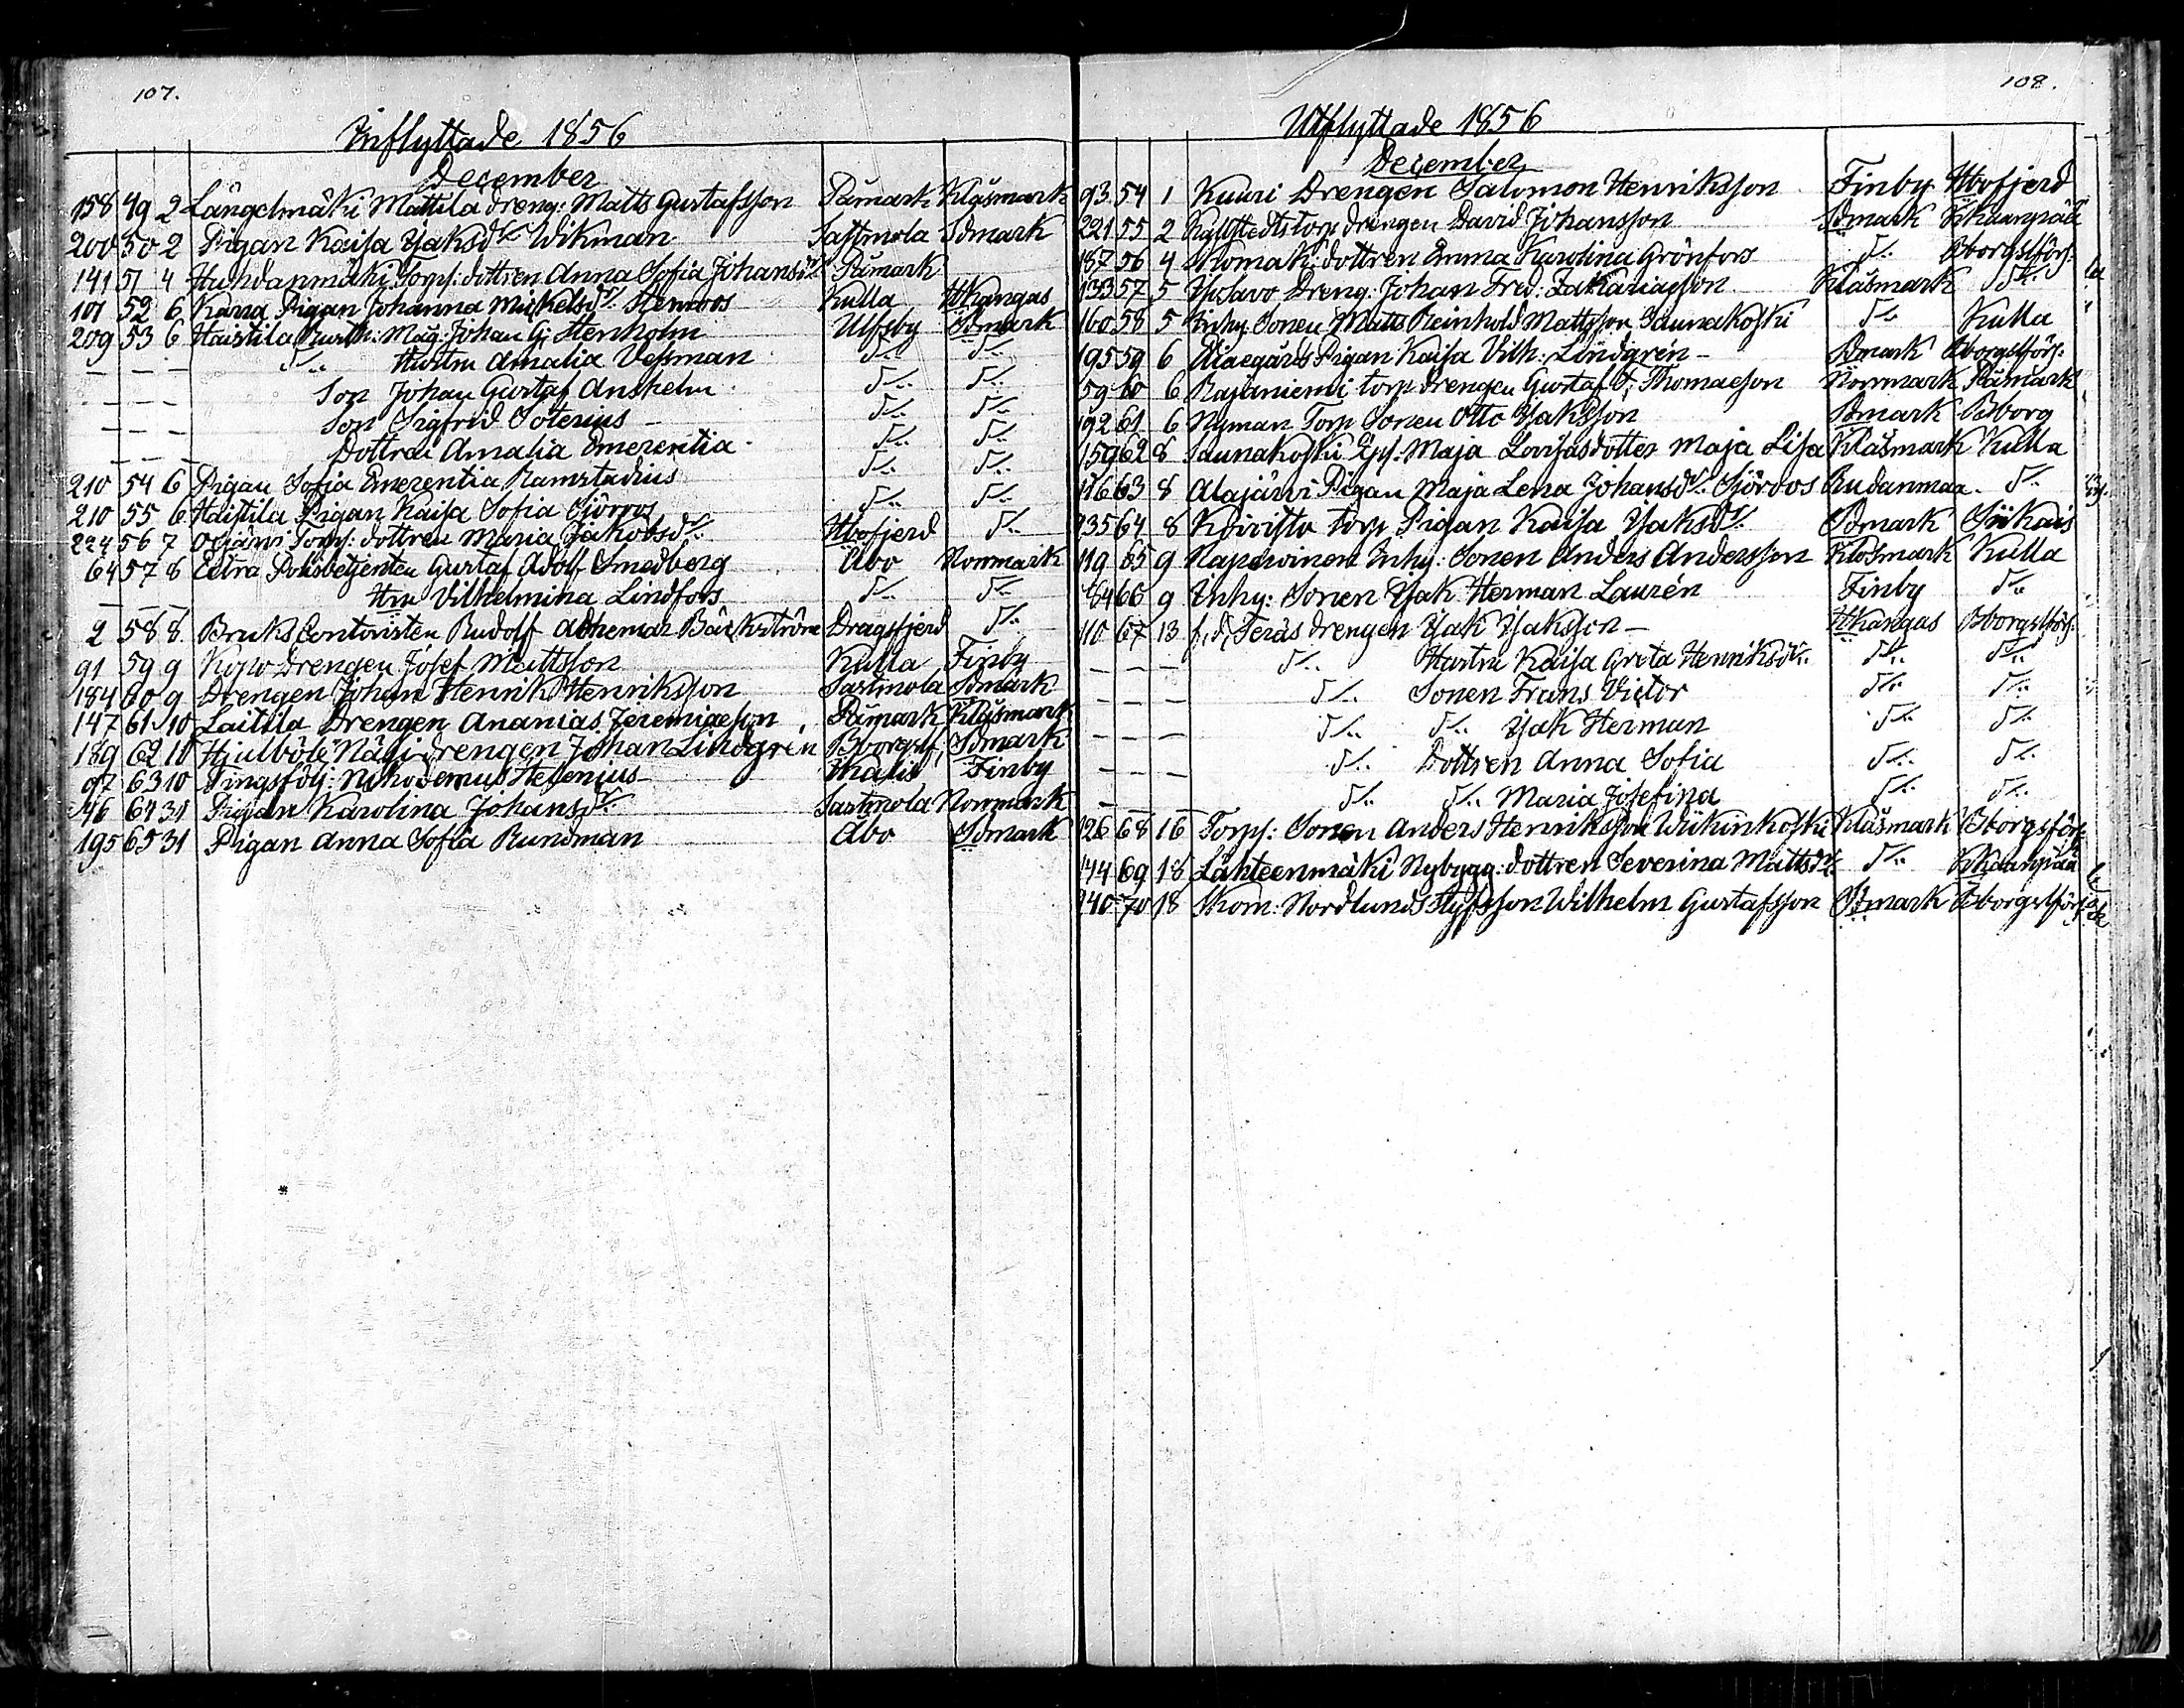 107.
Inflyttade 1856
December
158 49 2 Längelmäki Mattila dreng: Matts Gustafsson Påmark Klåsmark
200 50 2 Pigan Kaisa Isaksdr Wikman Sastmola Sdmark
141 51 4 Huhdanmäki Torp: dottren Anna Sofia Johansdr Påmark
101 52 6 Pigan Johanna Mickelsdr Stenroos Kulla Hkangas
209 53 6 Haistila Mag: Johan G: Stenholm Ulfsby Sdmark
— — — Dr.. Hustru Amalia Vessman Dr.. Dr..
— — — Son Johan Gustaf Anshelm Dr.. Dr..
— — — Son Sigfrid Soterius Dr.. Dr..
— — — Dottren Amalia Emerentia Dr.. Dr..
210 54 6 Pigan Sofia Emerentia Ramstadius Dr.. Dr..
210 55 6 Haistila Pigan Kaisa Sofia Sjöroos Dr.. Dr..
224 56 7 Torp: dottren Maria Jakobsdr Hbofjerd Dr..
64 57 8 Extra Polisbetjenten Gustaf Adolf Smedberg Åbo Norrmark
— — — Hru Vilhelmina Lindfors Dr.. Dr..
2 58 8 Bruks Contoristen Rudolf Adhemar Bäckström Dragsfjerd Dr..
91 59 9 Drengen Josef Mattsson Kulla Finby
184 60 9 Drengen Johan Henrik Henriksson Sastmola Sdmark
147 61 10 Laitila Drengen Ananias Jeremiaeson Påmark Klåsmark
189 62 10 Hjulböle Näsi drengen Johan Lindgrén Bborgslf, Sdmark
97 6310 Tingsfölj: Nikodemus Helenius Ikalis Finby
46 6431 Pigan Karolina Johansdr Sastmola Norrmark
195 6531 Pigan Anna Sofia Rundman Åbo Sdmark
108.
Utflyttade 1856
December
93 54 1 Kuuri Drengen Salomon Henriksson Finby Hbofjerd
221 55 2 torp drengen David Johansson Sdmark Kkaanpää
187 56 4 Skomak: dottren Emma Karolina Grönfors Dr.. Bborgslförs:
133 57 5 Dreng: Johan Fred: Zakariasson Klåsmark Dr..
160 58 5 Inhy Sonen Matts Reinhold Mattsson Saunakoski Dr.. Kulla
195 59 6 Pigan Kaisa Vilh: Lindgrén — Sdmark Bborgslförs:
59 60 6 Rajaniemi torp drengen Gustaf Thomaeson Norrmark Påmark
192 61 6 Nyman Torp Sonen Otto Isaksson Sdmark Bborg
159 62 8 Saunakoski Maja Lovisasdotter Maja Lisa Klåsmark Kulla
116 63 8 Alajärvi Pigan Maja Lena Johansdr. Sjöroos Rudanmaa Dr..
235 64 8 Koivisto torp Pigan Kaisa Isaksdr. Sdmark Siikais
119 65 9 Inhy: Sonen Anders Andersson Klåsmark Kulla
84 66 9 Inhy: Sonen Isak Herman Laurén Finby Dr..
110 67 13 f. d. Teräs drengen Isak Isaksson — Hkangas Bborgslförs:
— — — Dr.. Hustru Kaisa Greta Henriksdr.. Dr.. Dr..
— — — Dr.. Sonen Frans Victor Dr.. Dr..
— — — Dr.. Dr.. Isak Herman Dr.. Dr..
— — — Dr.. Dottren Anna Sofia Dr.. Dr..
— Dr.. Dr.. Maria Josefina Dr.. Dr..
126 68 16 Torps: Sonen Anders Henriksson Wiikinkoski Klåsmark Bborgsförs:
144 69 18 Lähteenmäki Nybygg: dottren Severina Mattsdr Dr.. Kkaanpää
240 70 18 Skom: Nordlunds Styfsson Wilhelm Gustafsson Sdmark Bborgslförs: